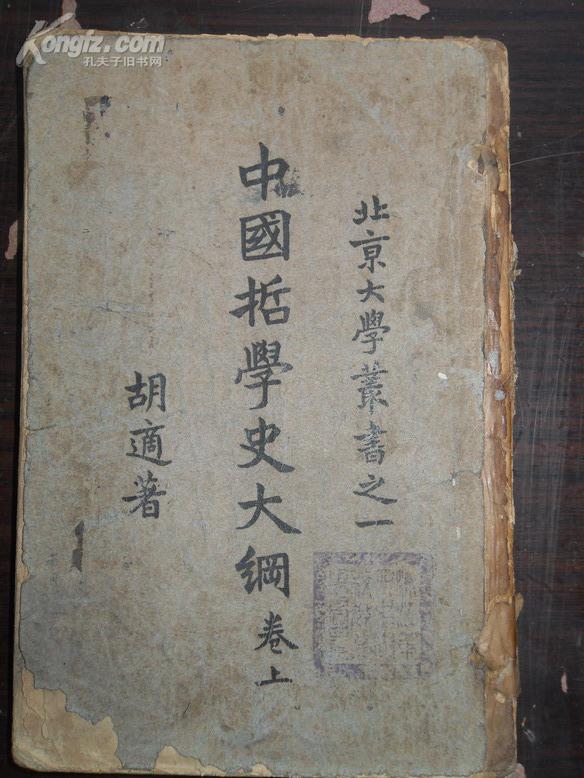 Kongfz.com
孔夫子旧书网
北京大學叢書之一
中國哲學史大綱 卷上
胡適著